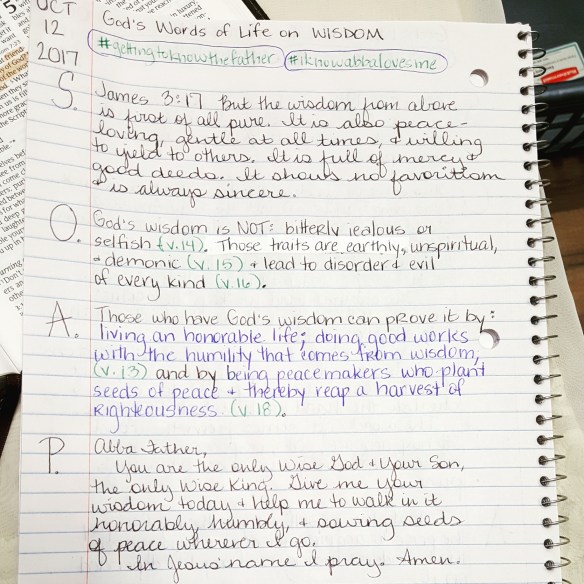 OCT
12
2017
God's Words of Life on WISDOM
#gettingtoknowthefather #iknowabbalovesme
S. James 3:17 But the wisdom from above
is first of all pure. It is also peace-
loving, gentle at all times, & willing
to yield to others. It is full of mercy &
good deeds. It shows no favoritism
& is always sincere.
O. God's wisdom is NOT: bitterly jealous or
selfish (v.14). Those traits are earthly, unspiritual,
& demonic (v.15) & lead to disorder & evil
of every kind (v.16).
A. Those who have God's wisdom can prove it by:
living an honorable life; doing good works
with the humility that comes from wisdom,
(v.13) and by being peacemakers who plant
seeds of peace & thereby reap a harvest of
Righteousness (v.18).
P. Abba Father,
You are the only Wise God & Your Son,
the only Wise King. Give me your
wisdom today & help me to walk in it
honorably, humbly, & sowing seeds
of peace wherever I go.
In Jesus' name I pray. Amen.